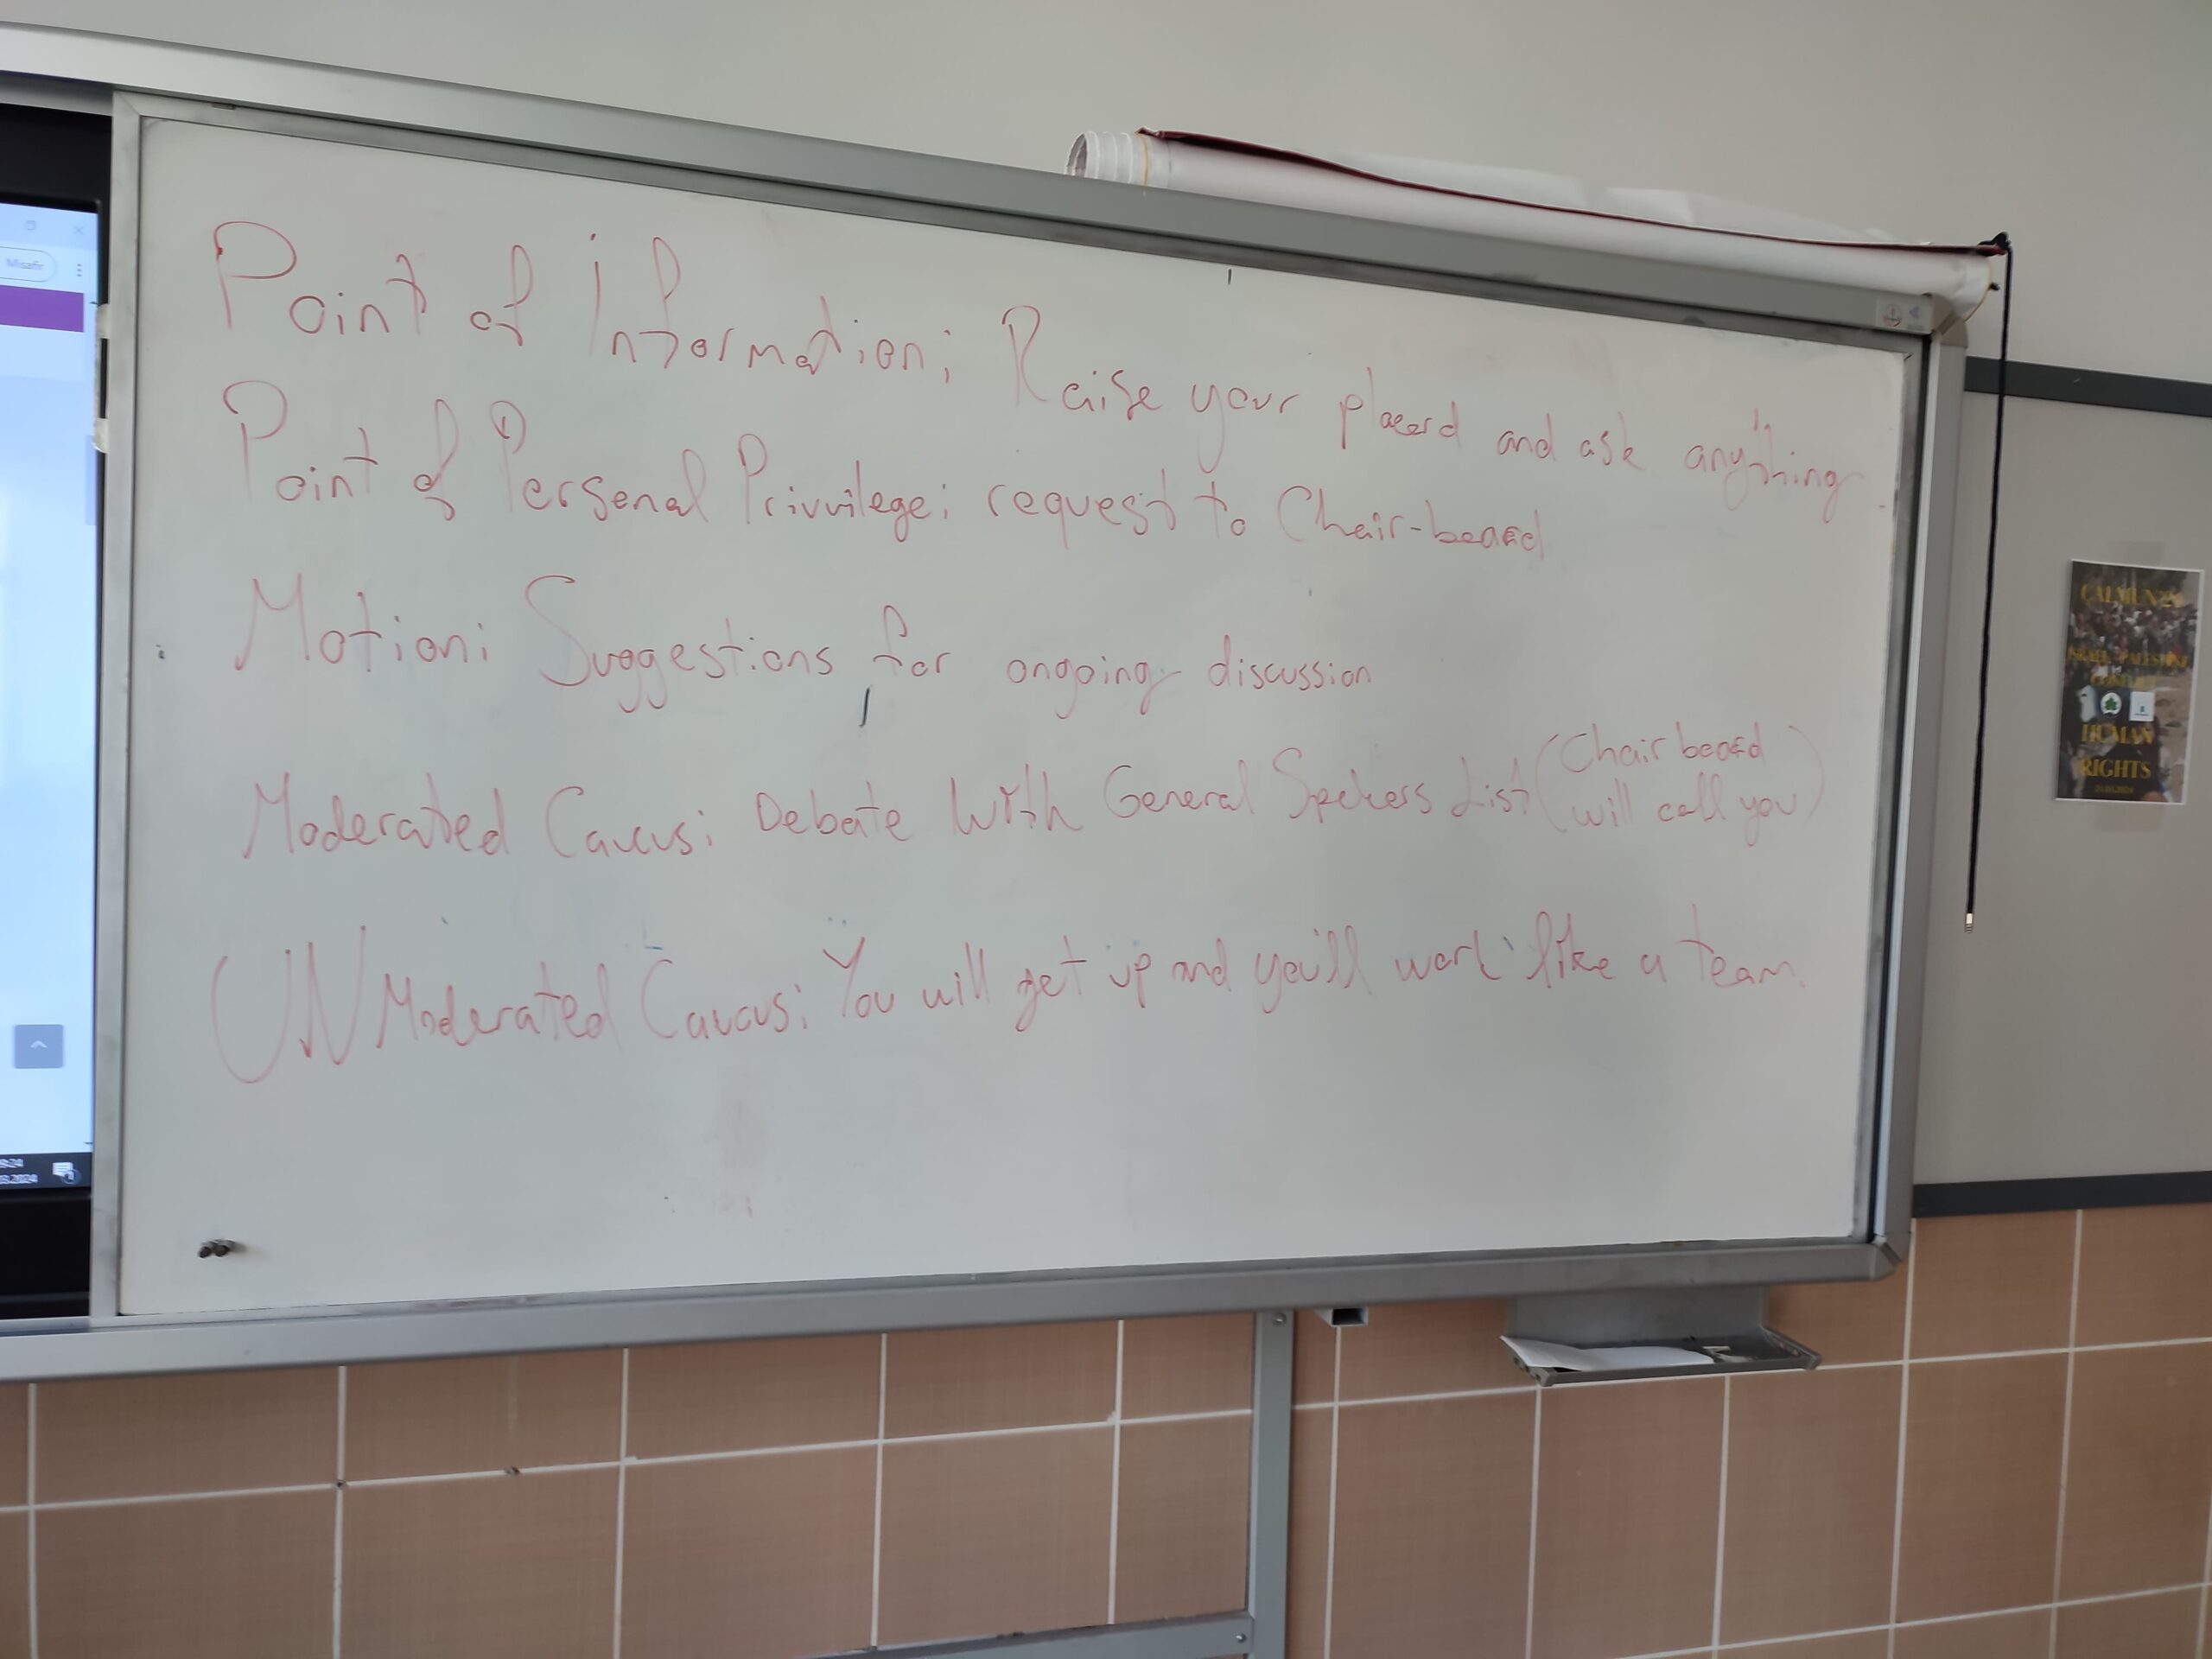 Point of Information; Raise your placard and ask anything.
Point of Personal Privilege; request to Chair-board
Motion: Suggestions for ongoing discussion
Moderated Caucus: Debate With General Spekers List (Chair board
will call you)
UNModerated Caucus: You will get up and you'll work like a team.
Misafir
CALMUN'24
ISRAEL PALESTINE
CONFLICT
HUMAN
RIGHTS